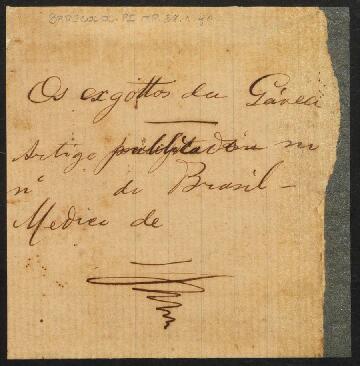 Os exgottos da Gávea
Artigo publicado no
nº do Brasil-
Medico de